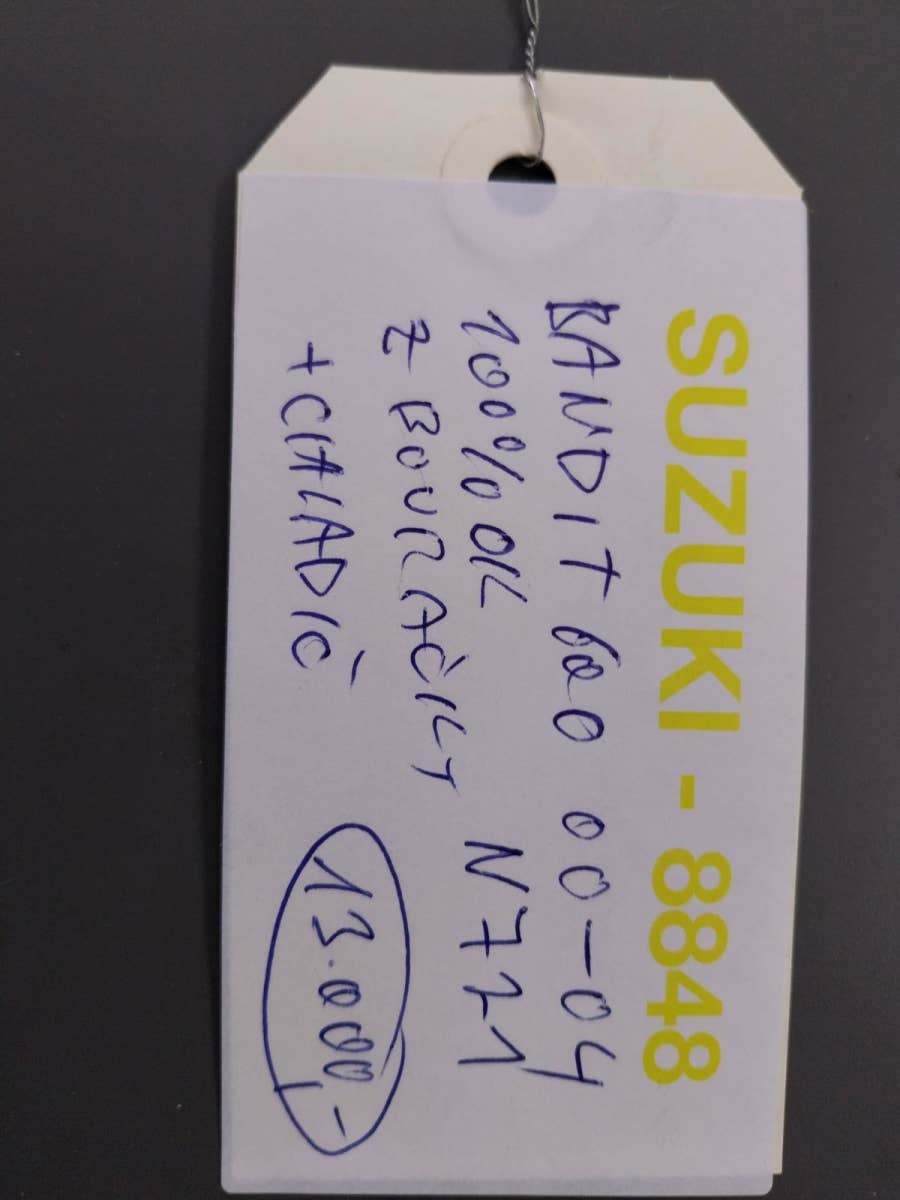 SUZUKI - 8848
BANDIT 600 00-04
100% OK N721
Z BOURAČKY
+ CHLADIČ 13.000,-